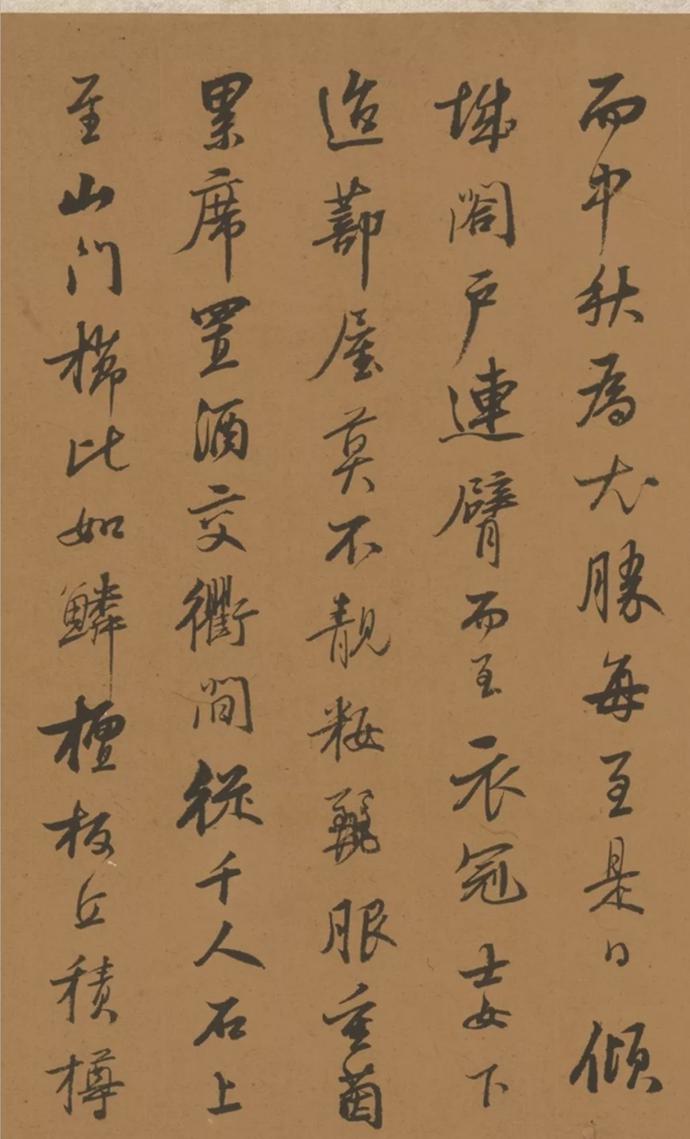 而中秋為尤勝每至是日傾
城閤戶連臂而至衣冠士女下
迨蔀屋莫不靚粧麗服重茵
累席置酒交衢間從千人石上
至山門櫛比如鱗檀板丘積樽